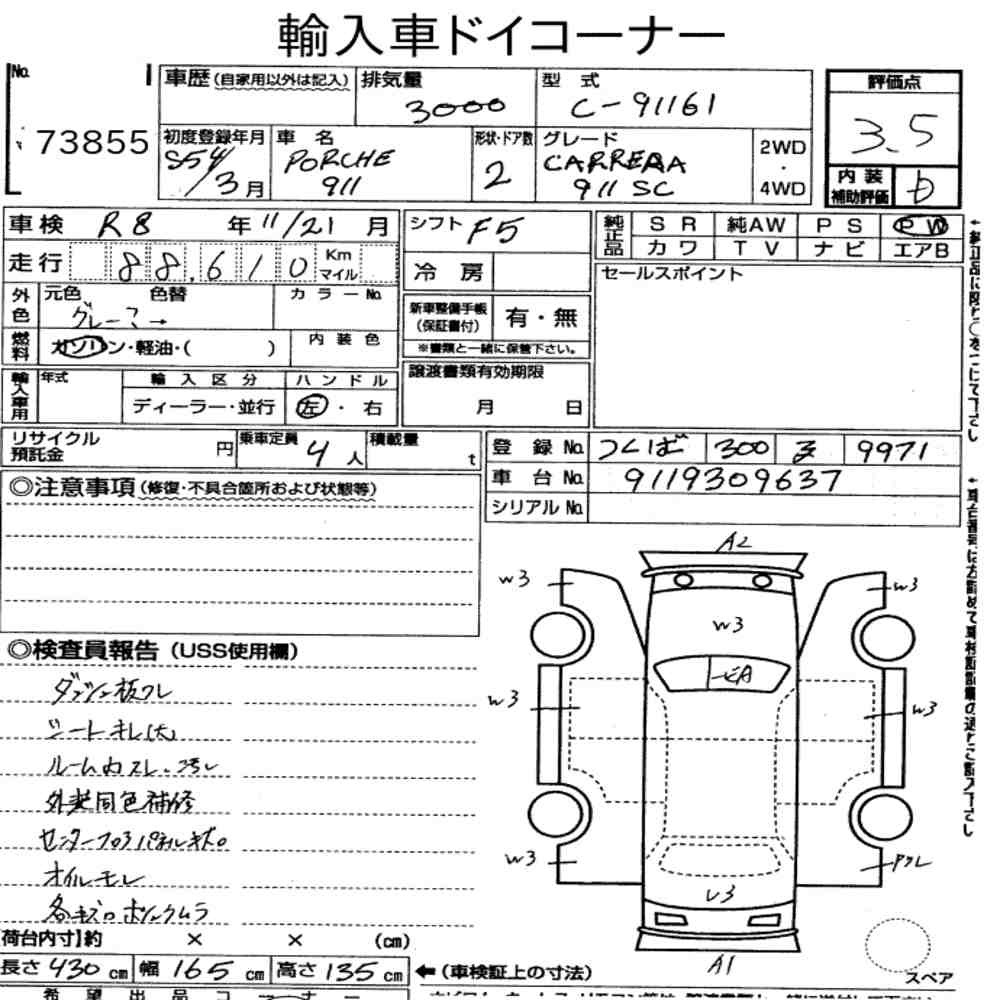 輸入車ドイコーナー
No.
73855
車歴(自家用以外は記入)
排気量
3000
型式
C-91161
評価点
3.5
初度登録年月
S54/3月
車名
PORCHE
911
形状・ドア数
2
グレード
CARRERA
911 SC
2WD
・
4WD
内装
補助評価
D
車検 R8 年 11/21 月
シフト F5
純正品
SR 純AW PS PW
カワ TV ナビ エアB
走行 88,610 Km マイル
冷房
セールスポイント
外色
元色 色替 カラーNo.
グレー ? →
新車整備手帳
(保証書付)
有・無
※書類と一緒に保管下さい。
燃料
ガソリン・軽油・( )
内装色
譲渡書類有効期限
月 日
輸入車用
年式
輸入区分
ハンドル
ディーラー・並行
左・右
リサイクル
預託金
円
乗車定員
4人
積載量
t
登録No. つくば 300 9971
車台No. 9119309637
シリアルNo.
◎注意事項(修復・不具合箇所および状態等)
◎検査員報告(USS使用欄)
ダッシュ板ワレ
シートキレ(大)
ルーム内スレ、汚レ
外装同色補修
センターフロアパネルキズ
オイルモレ
各キズ ボンックムラ
A2
W3
W3
W3
A
W3
W3
W3
U3
A1
スペア
荷台内寸】約 × × (cm)
長さ430cm 幅165cm 高さ135cm
←(車検証上の寸法)
希望出品コーナー
←純正品に限り○をつけて下さい
←車台番号は左詰めで車検証記載の通りご記入下さい